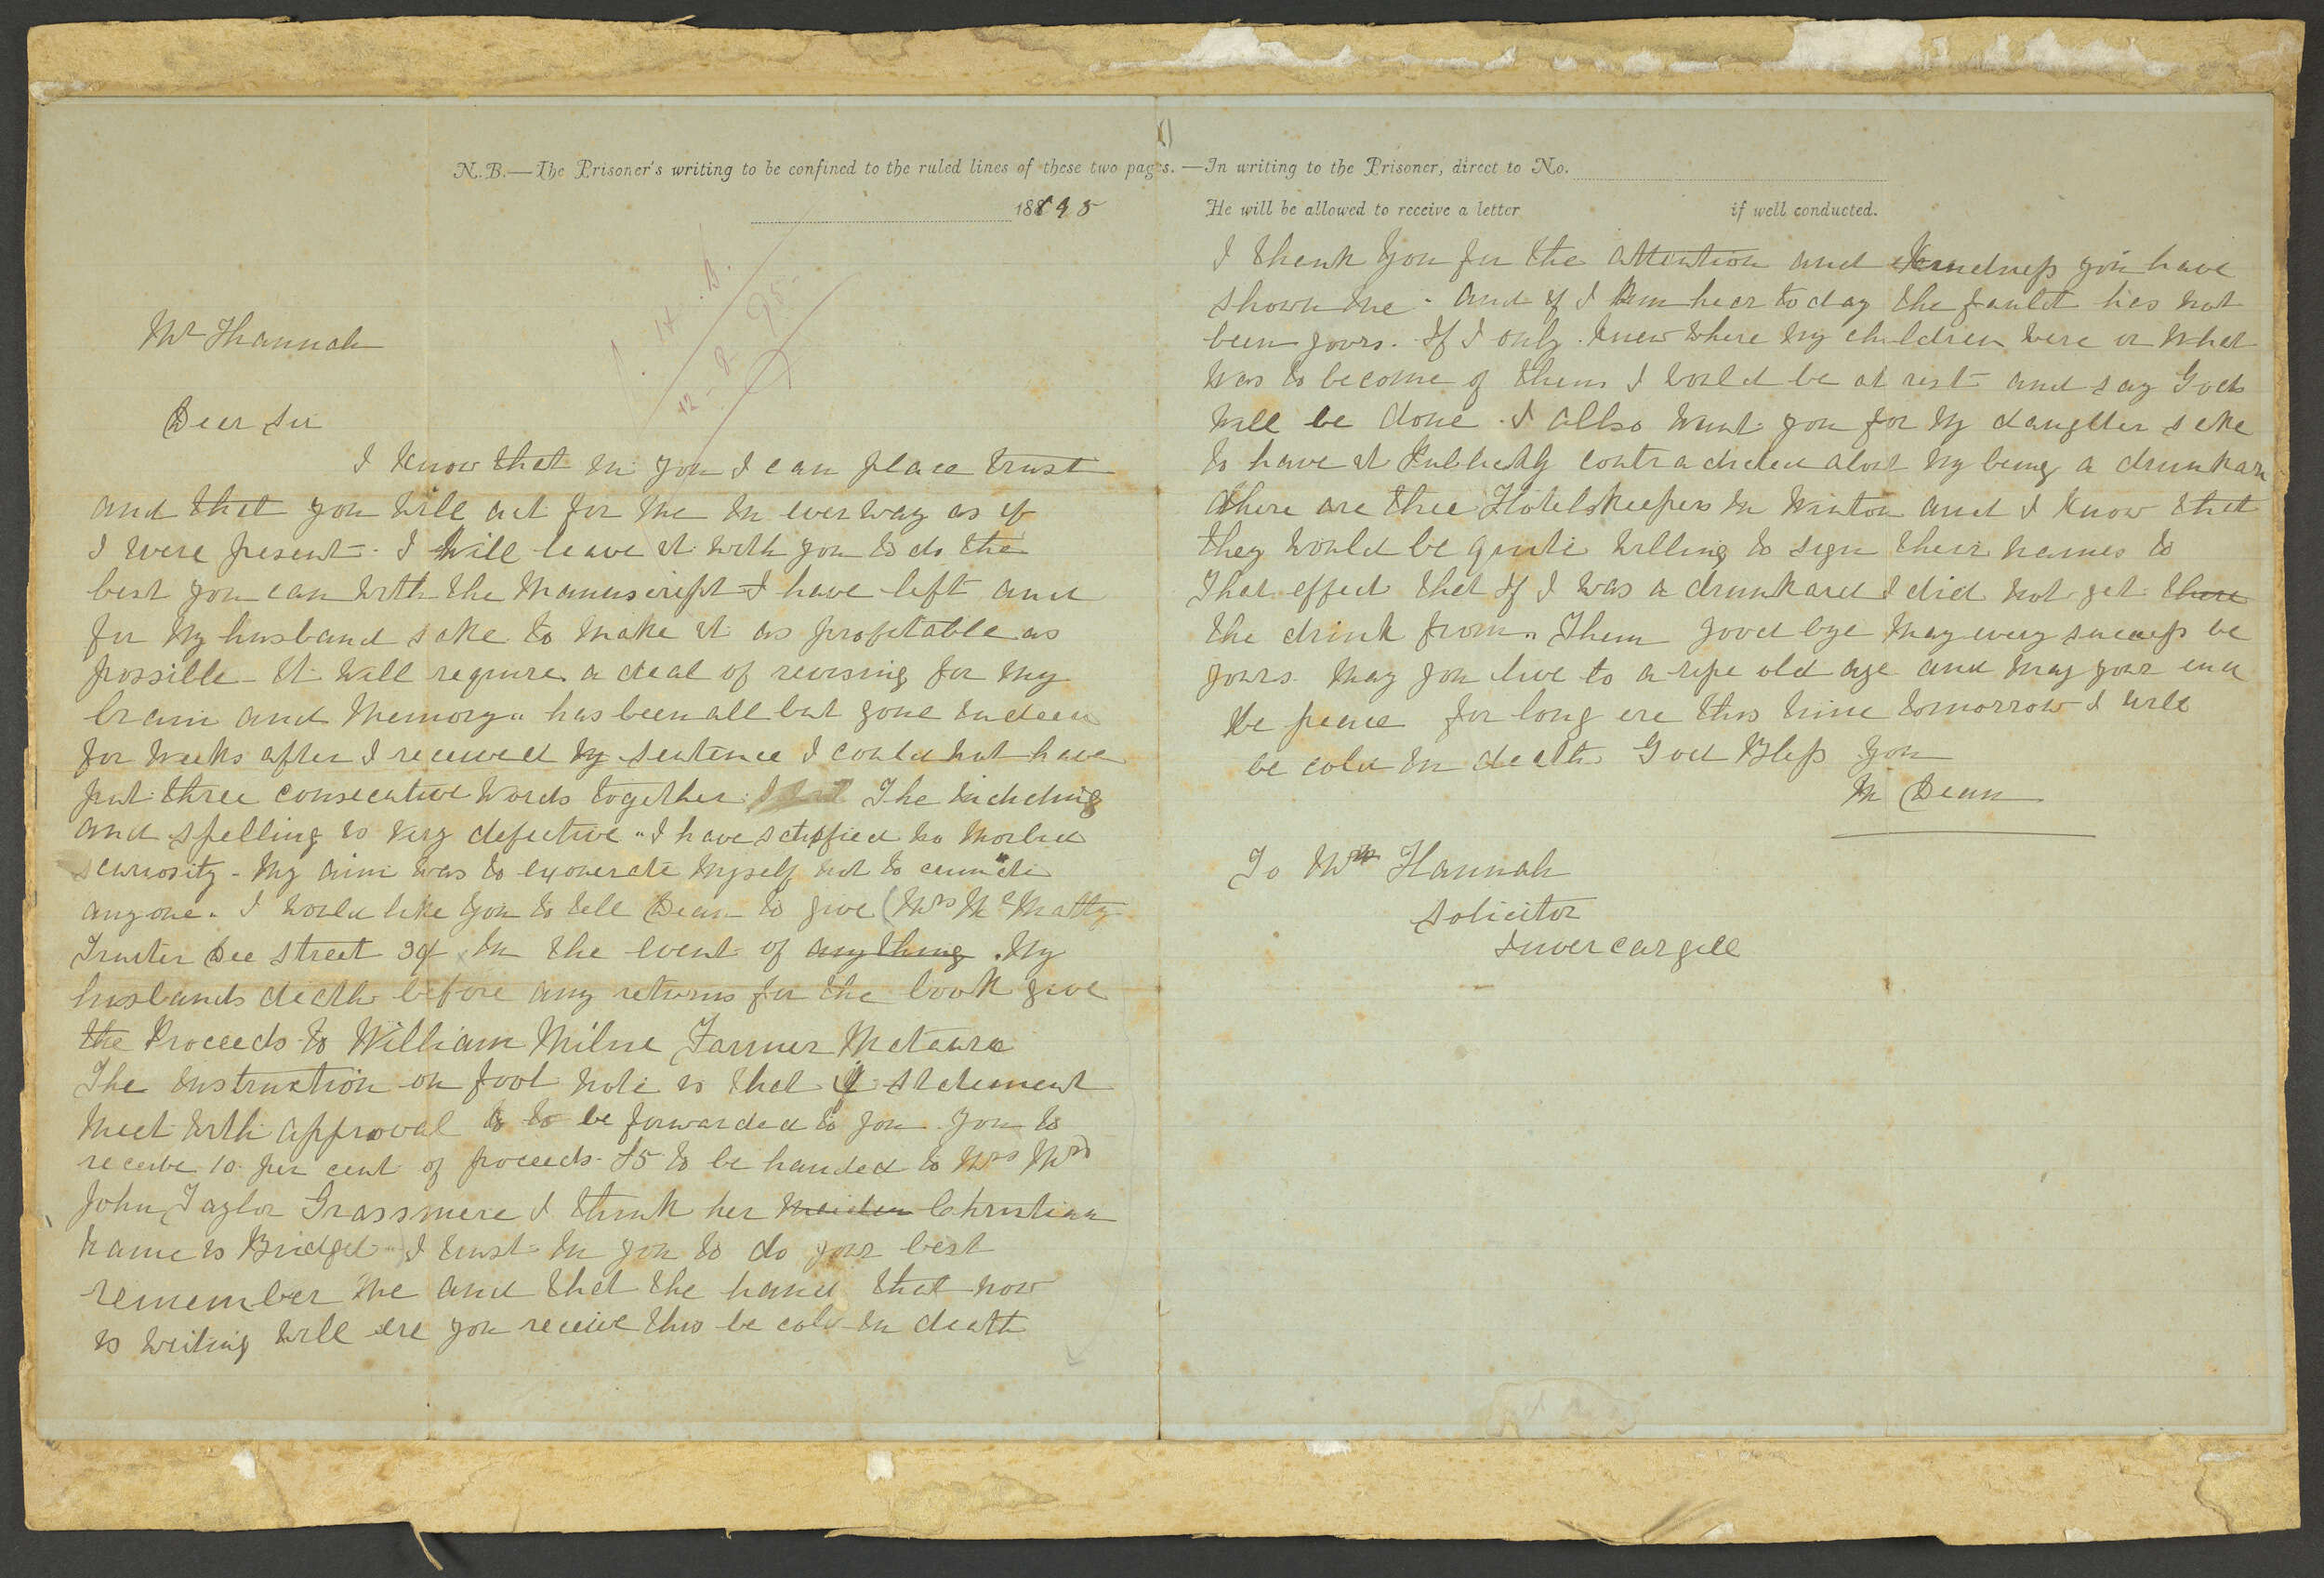 N.B.—The Prisoner's writing to be confined to the ruled lines of these two pages.—In writing to the Prisoner, direct to No.
1895
He will be allowed to receive a letter if well conducted.
12 - 8 - 95
Mr Hannah
Dear Sir
I know that in you I can place trust
and that you will act for me in ever way as if
I were present. I will leave it with you to do the
best you can with the manuscript I have left and
for my husband sake to make it as profetable as
possible - it will require a deal of revising for my
brain and memory has been all but gone indeed
for weeks after I received my sentence I could not have
put three consecutive words together. The
and spelling is very defective "I have satisfied no morbed
scuriosity - My aim was to exonerate myself not to
anyone. I would like you to tell Dean to give (Mrs McMatty
Dee street In the event of anything . My
husbands death before any returns for the book give
the Proceeds to William Milne Farmer Mataura
The instruction on foot note is that if statement
meet with approval is to be forwarded to you. you to
receive 10 per cent of proceeds. £5 to be handed to Mrs Mrs
John Taylor Grassmere I think her maiden Christian
name is Bridget) I trust in you to do your best
remember me and that the hand that now
is writing will ere you receive this be cold in death
I thank you for the attention and kindness you have
shown me - and if I am hear today the fault lies not
been yours. If I only knew where my children were or what
was to become of them I would be at rest and say Gods
will be done. I allso want you for my daughter sake
to have it Publickly contradicted about my being a drunkard
there are three Hotelskeepers in Winton and I know that
they would be quite willing to sign their names to
That effect that if I was a drunkard I did not get there
the drink from. Them good bye may every success be
yours. May you live to a ripe old age and may your end
be peace for long ere this time tomorrow I will
be cold in death God Bless you
M Dean
To Mr Hannah
Solicitor
Invercargell